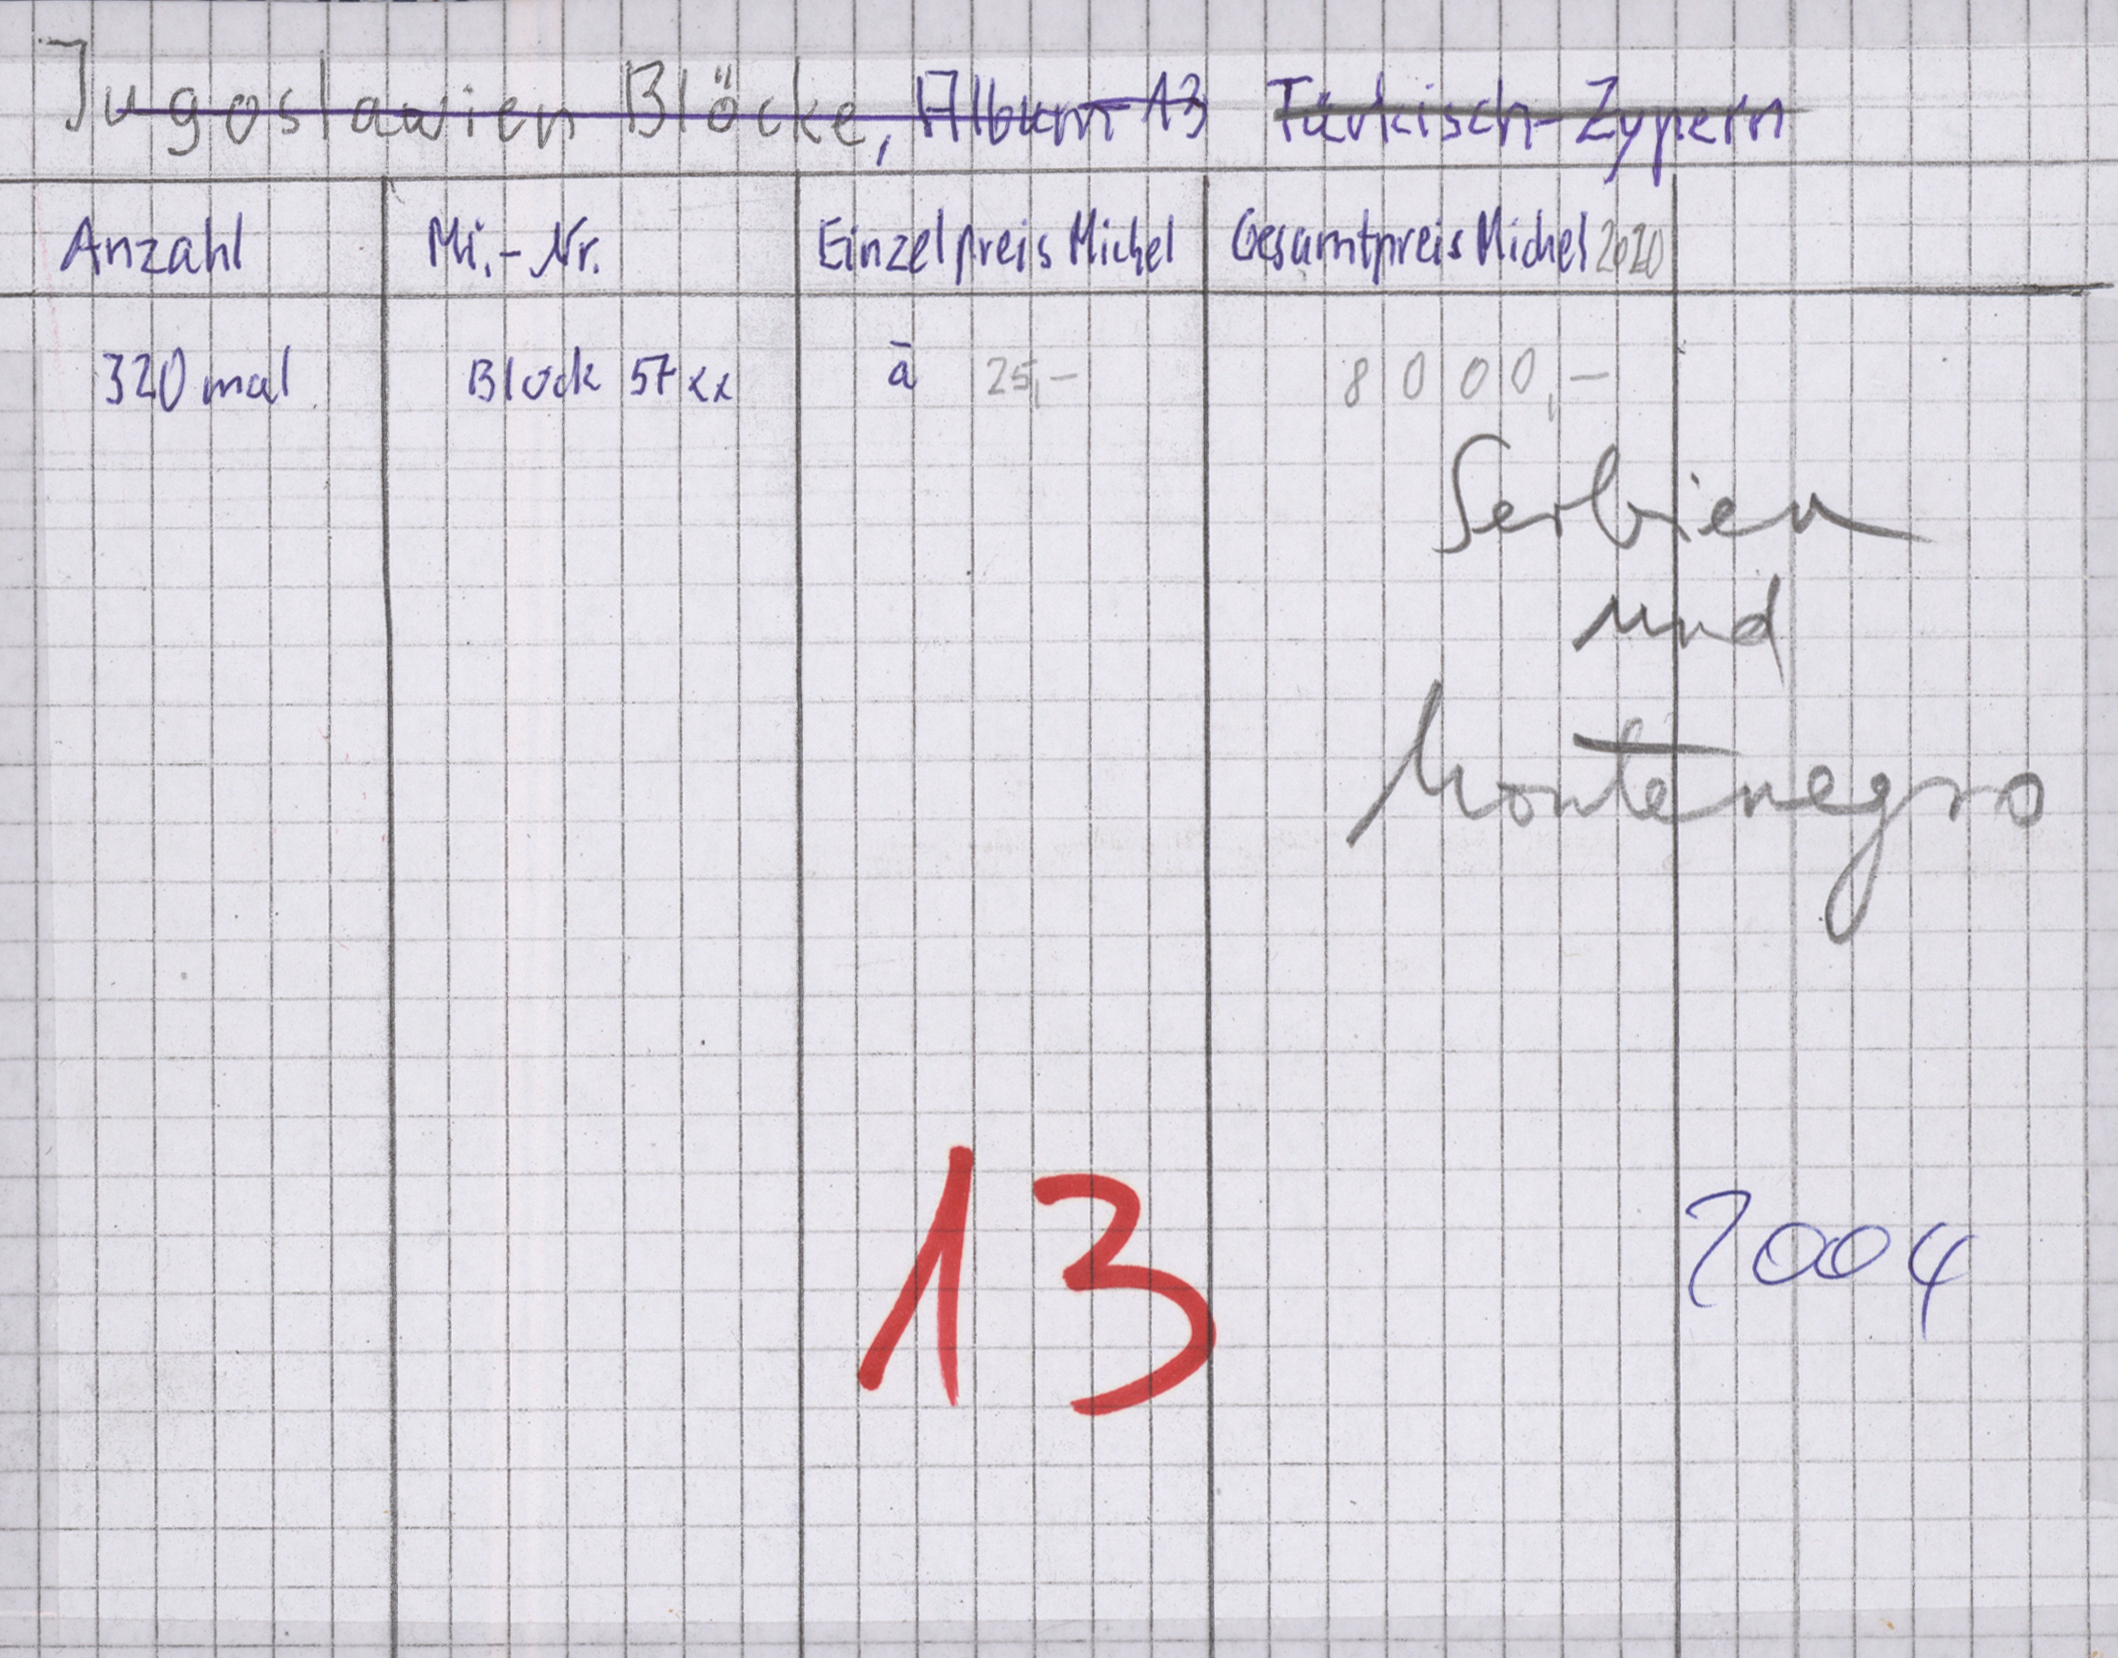 Jugoslawien Blöcke, Album 13 Türkisch-Zypern
Anzahl Mi.-Nr. Einzelpreis Michel Gesamtpreis Michel 2020
320 mal Block 57 xx à 25,- 8000,-
Serbien
und
Montenegro
13
2004